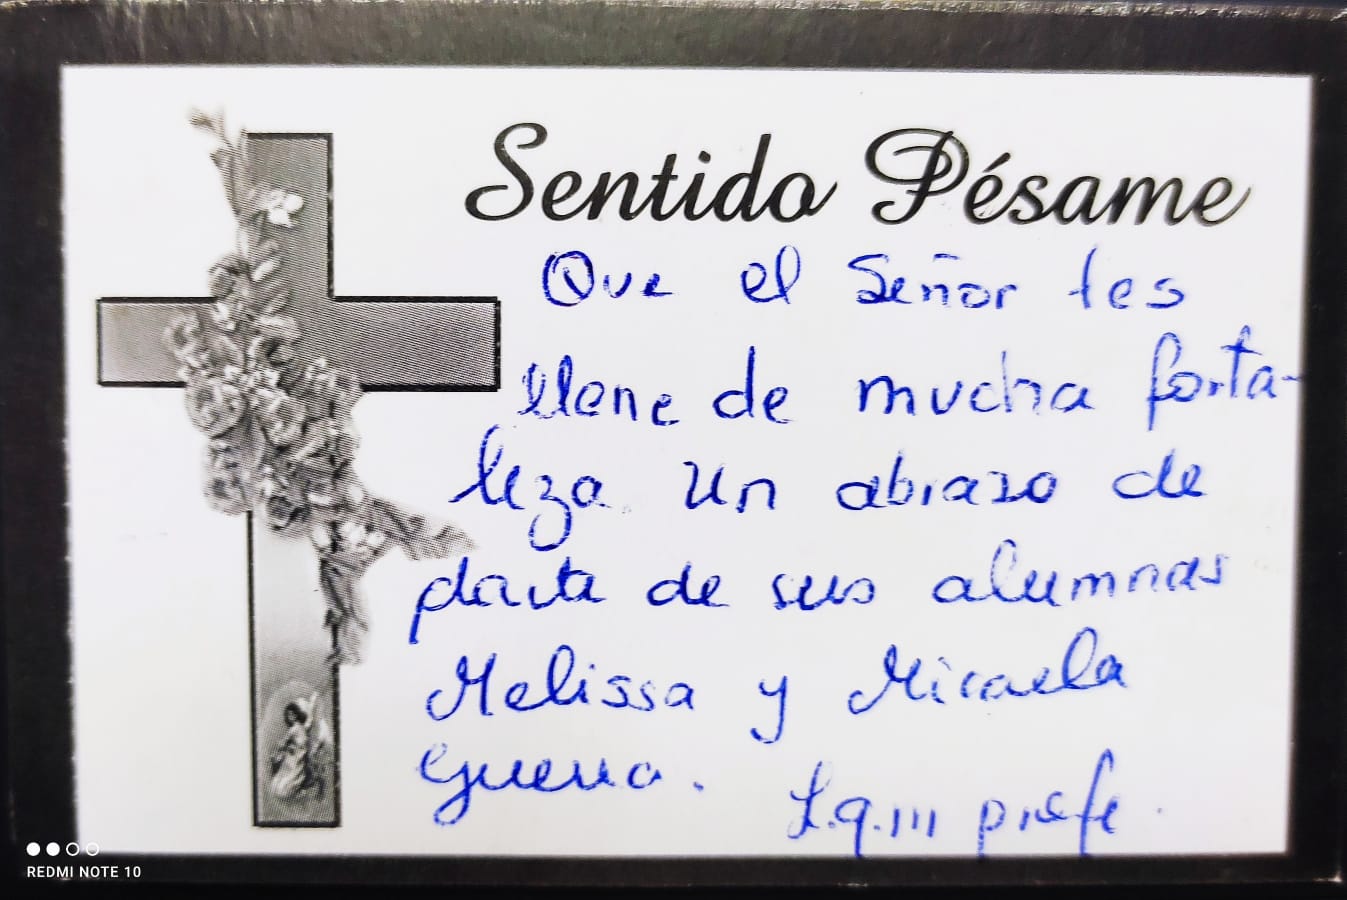 Sentido Pésame
Que el Señor les
llene de mucha forta-
leza. Un abrazo de
parte de sus alumnas
Melissa y Micaela
Guerra.
L.q.m profe.
REDMI NOTE 10